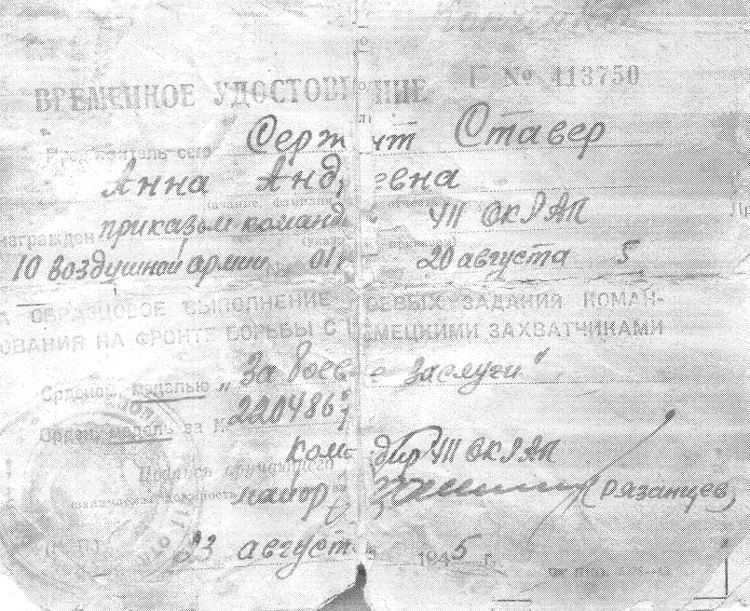 ВРЕМЕННОЕ УДОСТОВ НИЕ Г № 413750
Пред'явитель сего Сержант Ставер
Анна Анд евна
звание, фамилия отчество
награжден приказом команд VII ОКРАП
10 воздушной армии 01 20 августа 5
ОБРАЗЦОВОЕ ВЫПОЛНЕНИЕ ОЕВЫХ ЗАДАНИЙ КОМАН-
ОВАНИЯ НА ФРОНТЕ БОРЬБЫ С МЕЦКИМИ ЗАХВАТЧИКАМИ
Орденом, медалью „За боев е заслуги"
Орден, медаль за № 2204867
Командир VII ОКРАП
Подпись вручающего
майор (Рязанцев)
23 августа 1945 г.